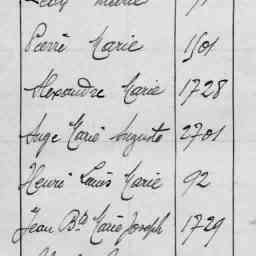 Pierre Marie 1501
Alexandre Marie 1728
Ange Marie Auguste 2701
Henri Louis Marie 92
Jean Bte Marie Joseph 1729